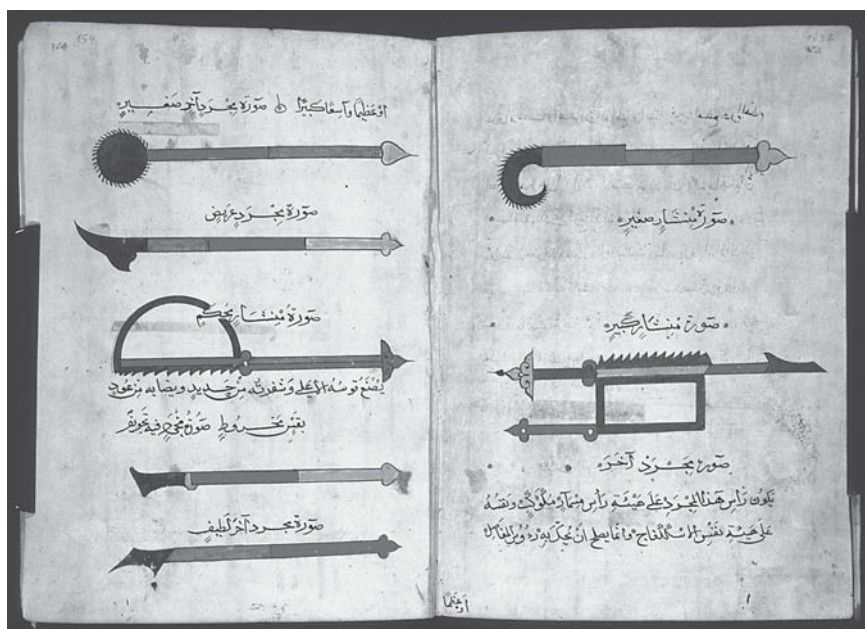 صورة منشار صغير
صورة منشار كبير
صورة مجرد آخر
يكون رأس هذا المجرد على هيئة رأس مسمار مكوكب ونقشه
على هيئة نقش وانما يصلح ان يحك به رؤوس المفاصل
154
أو عظيما واسعا كبيرا صورة مجرد آخر صغير
صورة مجرد عريض
صورة منشار محكم
يصنع قوسه الاعلى وشفرته من حديد ونصابه من عود
بقس مخروط صورة مجرد فيه تجويف
صورة مجرد آخر لطيف